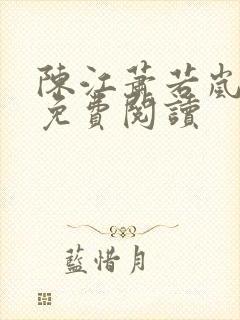 陳江蕭若嵐
免費閱讀
藍惜月